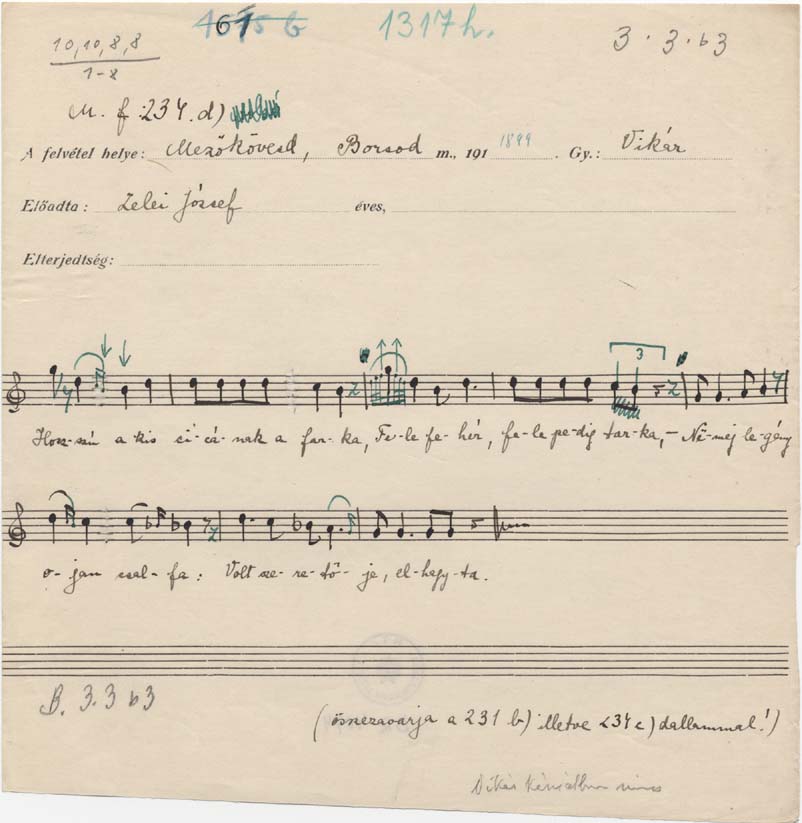 1675 b 1317h. 3 . 3 . b3
10,10,8,8
1-8
M. f. 234. d)
A felvétel helye: Mezőkövesd, Borsod m., 191 1899 . Gy.: Vikár
Előadta: Zelei József éves,
Elterjedtség:
3
Hosz-szú a kis ci-cá-nak a far-ka, Fe-le fe-hér, fe-le pe-dig tar-ka, – Né-mej le-gény
o-jan csal-fa: Volt sze-re-tő-je, el-hagy-ta.
B. 3.3 b3
(összezavarja a 231 b) illetve 234 c) dallammal!)
nincs